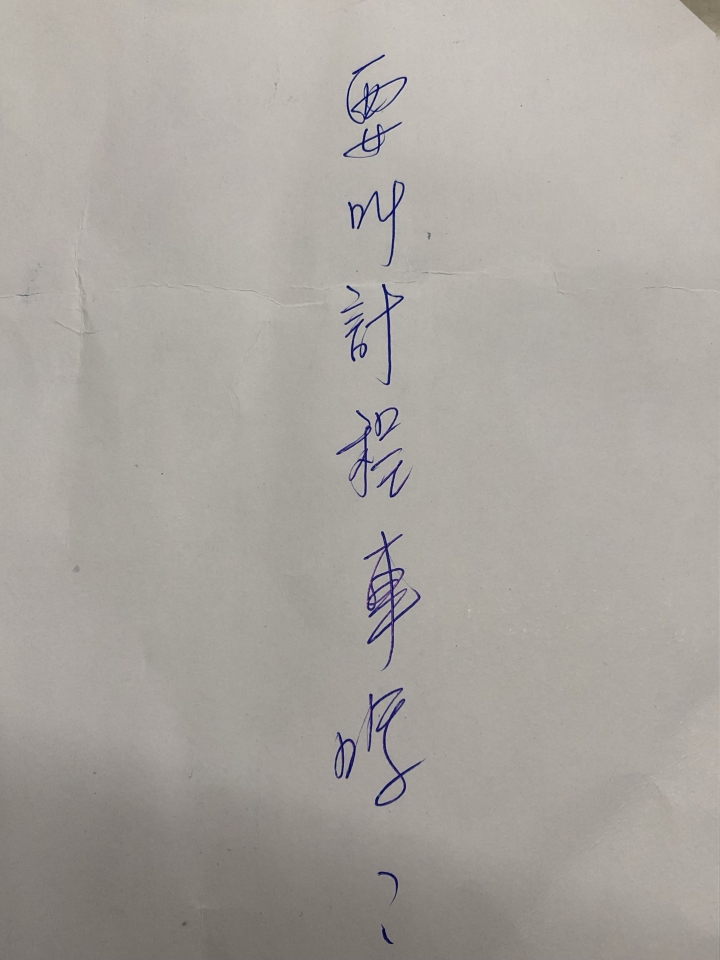 要叫計程車嗎？